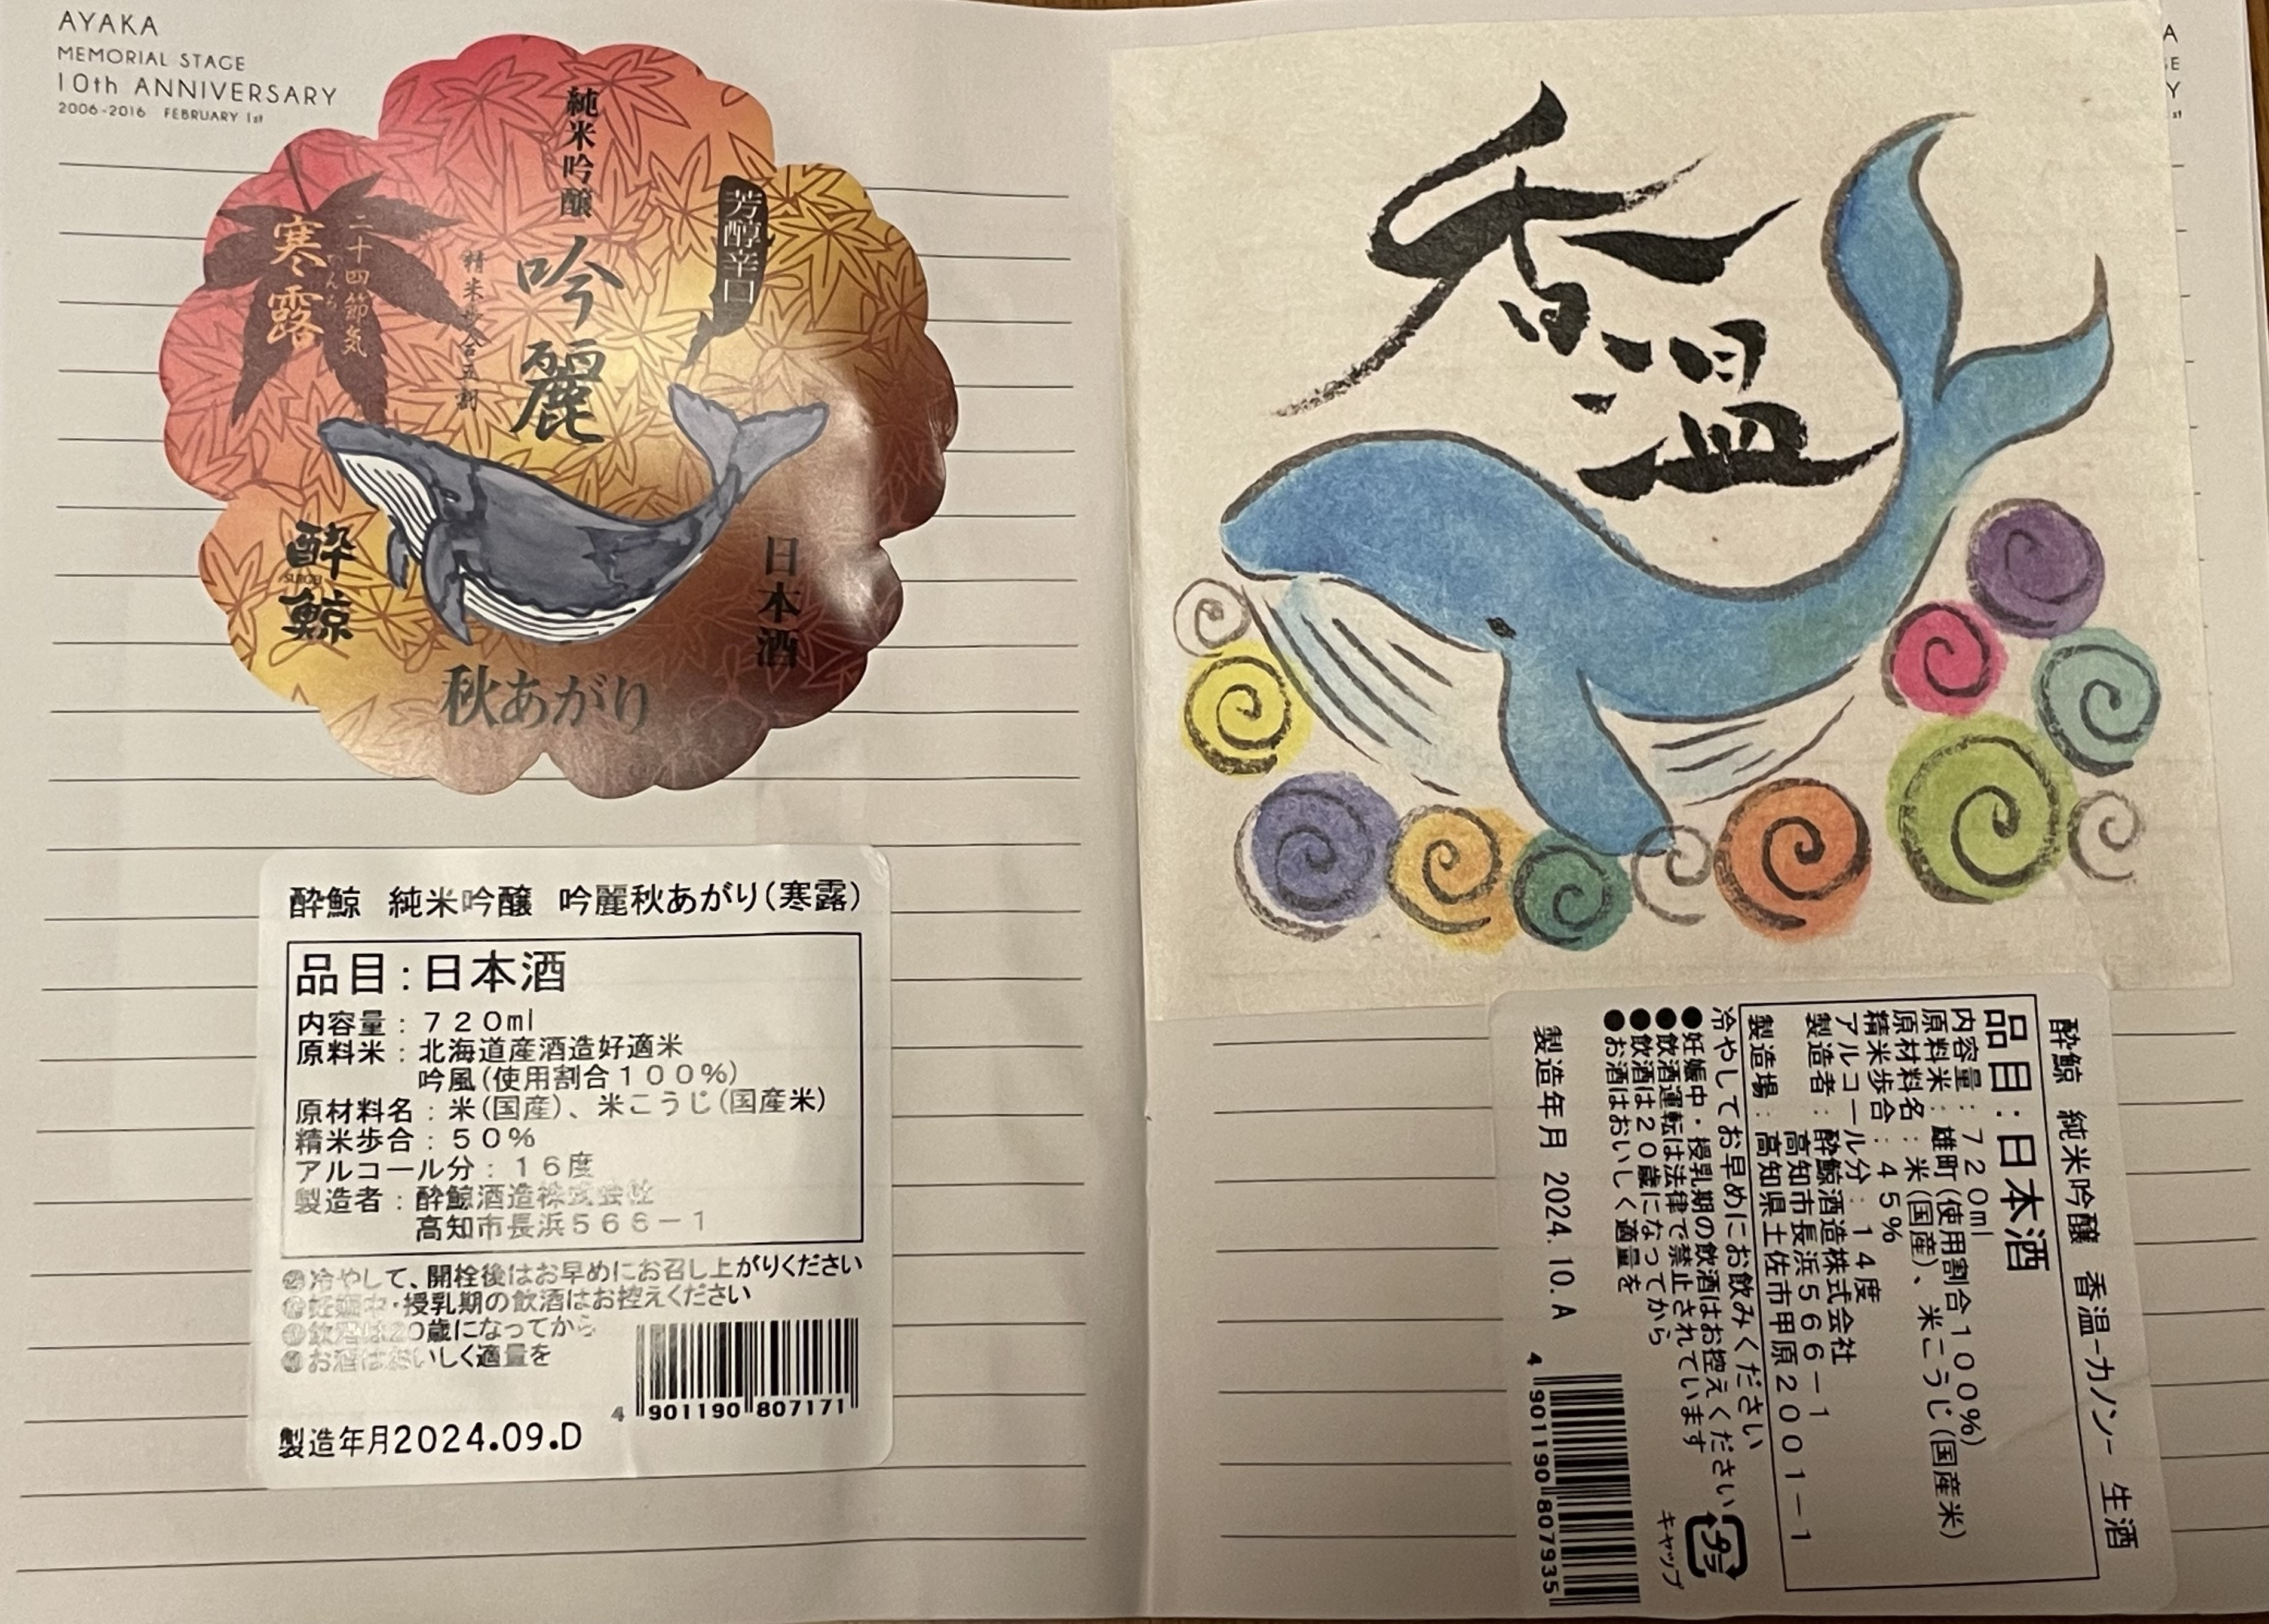 AYAKA
MEMORIAL STAGE
10th ANNIVERSARY
2006-2016 FEBRUARY 1st
純米吟醸
芳醇辛口
吟麗
精米歩合五割
二十四節気
寒露
かんろ
酔鯨
SUIGEI
日本酒
秋あがり
酔鯨 純米吟醸 吟麗秋あがり(寒露)
品目:日本酒
内容量:720ml
原料米:北海道産酒造好適米
吟風(使用割合100%)
原材料名:米(国産)、米こうじ(国産米)
精米歩合:50%
アルコール分:16度
製造者:酔鯨酒造株式会社
高知市長浜566-1
●冷やして、開栓後はお早めにお召し上がりください
●妊娠中・授乳期の飲酒はお控えください
●飲酒は20歳になってから
●お酒はおいしく適量を
4 901190 807171
製造年月2024.09.D
A
GE
Y
st
香温
酔鯨 純米吟醸 香温-カノン- 生酒
品目:日本酒
内容量:720ml
原料米:雄町(使用割合100%)
原材料名:米(国産)、米こうじ(国産米)
精米歩合:45%
アルコール分:14度
製造者:酔鯨酒造株式会社
高知市長浜566-1
製造場:高知県土佐市甲原2001-1
冷やしてお早めにお飲みください
●妊娠中・授乳期の飲酒はお控えください
●飲酒運転は法律で禁止されています
●飲酒は20歳になってから
●お酒はおいしく適量を
キャップ
プラ
製造年月 2024.10.A
4 901190 807935